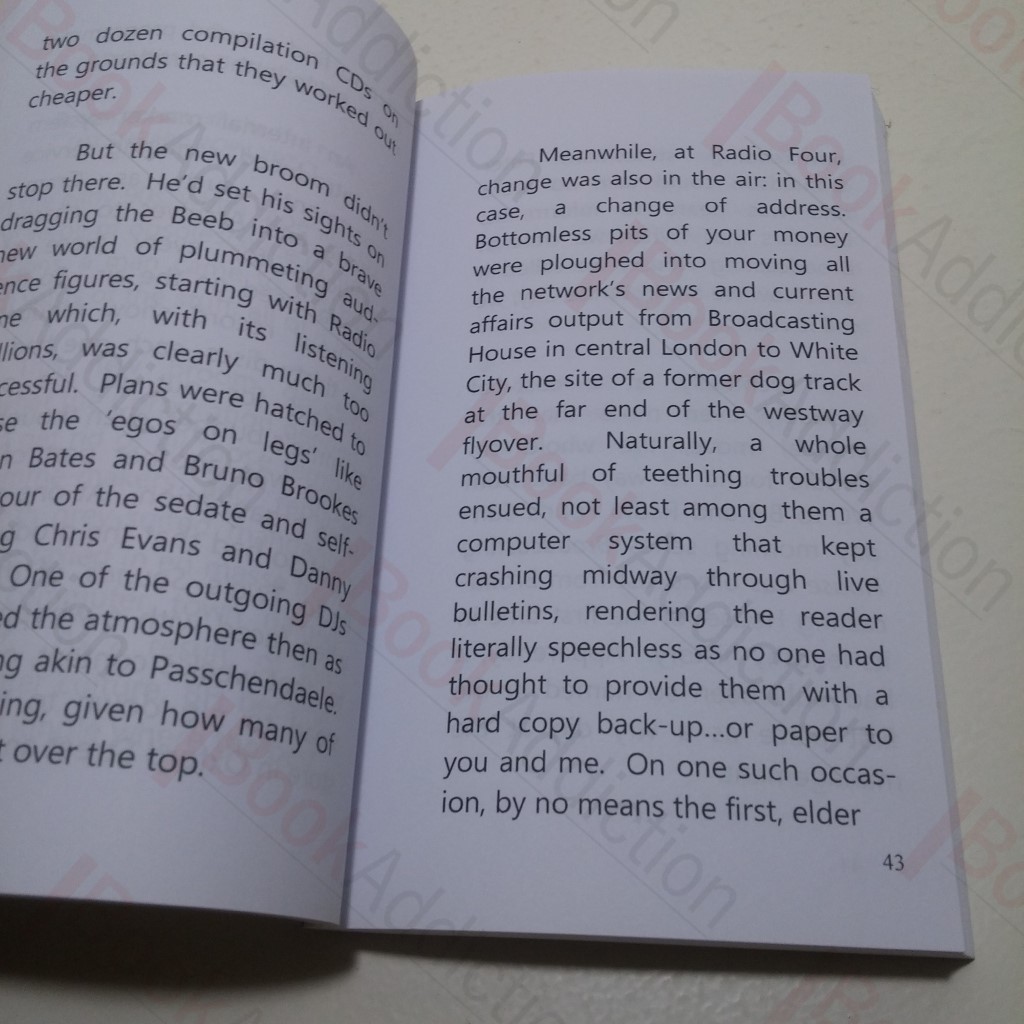 two dozen compilation CDs on
the grounds that they worked out
cheaper.
But the new broom didn't
stop there. He'd set his sights on
dragging the Beeb into a brave
new world of plummeting aud-
ence figures, starting with Radio
which, with its listening
was clearly much too
Plans were hatched to
the 'egos on legs' like
Bates and Bruno Brookes
of the sedate and self-
Chris Evans and Danny
One of the outgoing DJs
the atmosphere then as
akin to Passchendaele.
given how many of
over the top.
Meanwhile, at Radio Four,
change was also in the air: in this
case, a change of address.
Bottomless pits of your money
were ploughed into moving all
the network's news and current
affairs output from Broadcasting
House in central London to White
City, the site of a former dog track
at the far end of the westway
flyover. Naturally, a whole
mouthful of teething troubles
ensued, not least among them a
computer system that kept
crashing midway through live
bulletins, rendering the reader
literally speechless as no one had
thought to provide them with a
hard copy back-up...or paper to
you and me. On one such occas-
ion, by no means the first, elder
43
BookAddiction